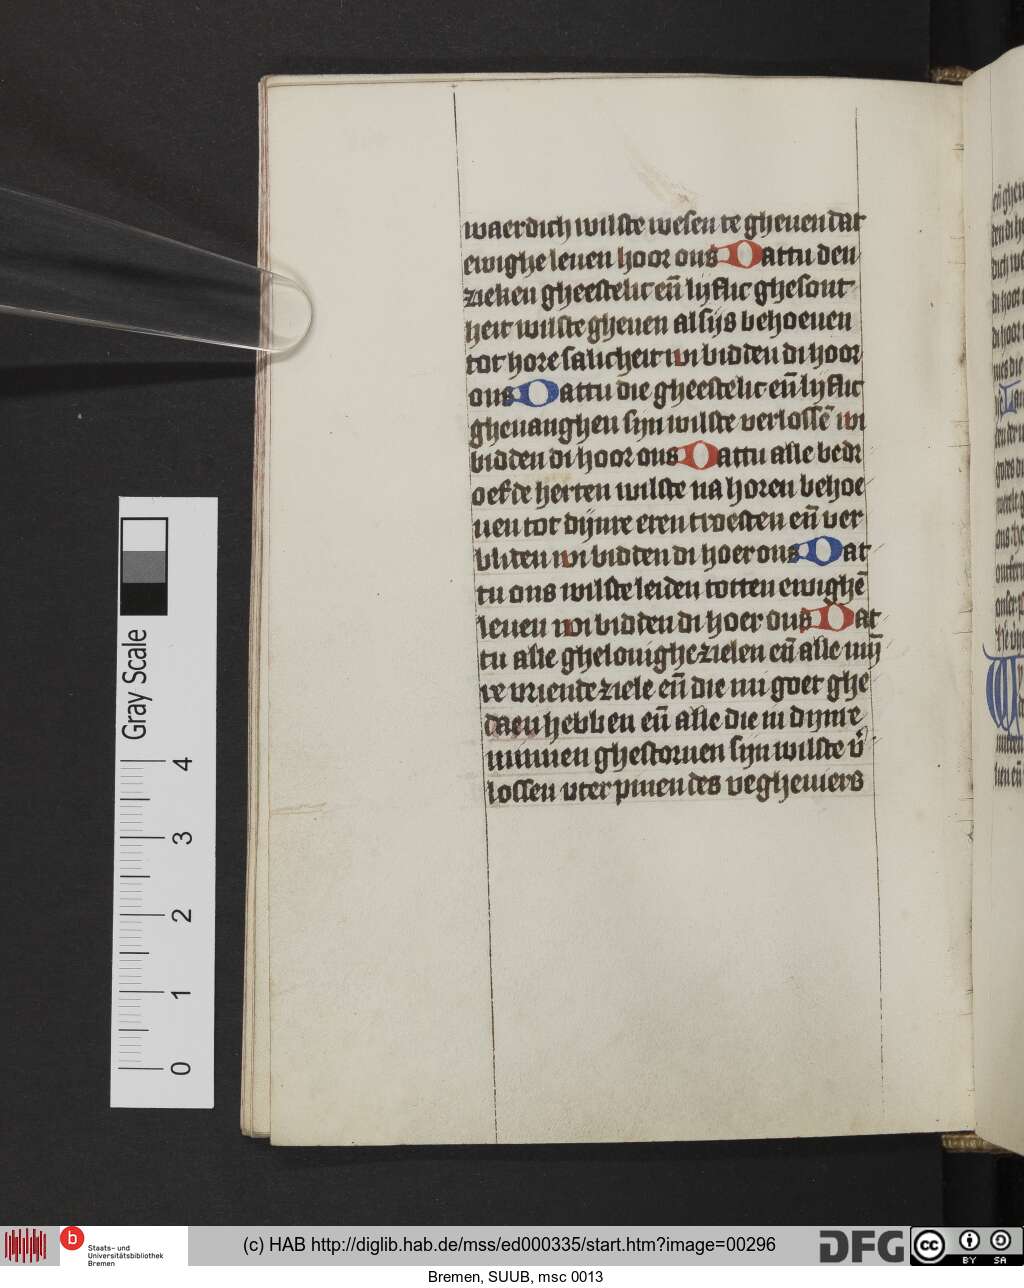 waerdich wilste wesen te gheuen dat
ewighe leuen hoor ons Dattu den
zieken gheestelic eñ lijflic ghesont
heit wilste gheuen als ijs behoeuen
tot hore salicheit wi bidden di hoor
ons Dattu die gheestelic eñ lijflic
gheuanghen sijn wilste verlossē wi
bidden di hoor ons Dattu alle bedr
oefde herten wilste na horen behoe
uen tot dijnre eren troesten eñ ver
bliden wi bidden di hoer ons Dat
tu ons wilste leiden totten ewighē
leuen wi bidden di hoer ons Dat
tu alle ghelouighe zielen eñ alle mij̄
re vriende ziele eñ die mi goet ghe
daen hebben eñ alle die in dijnre
minnen ghestoruen sijn wilste v̉
lossen vter pinen des veghewers
Gray Scale
4
3
2
1
0
b
Staats- und
Universitätsbibliothek
Bremen
(c) HAB http://diglib.hab.de/mss/ed000335/start.htm?image=00296
DFG
cc
BY SA
Bremen, SUUB, msc 0013